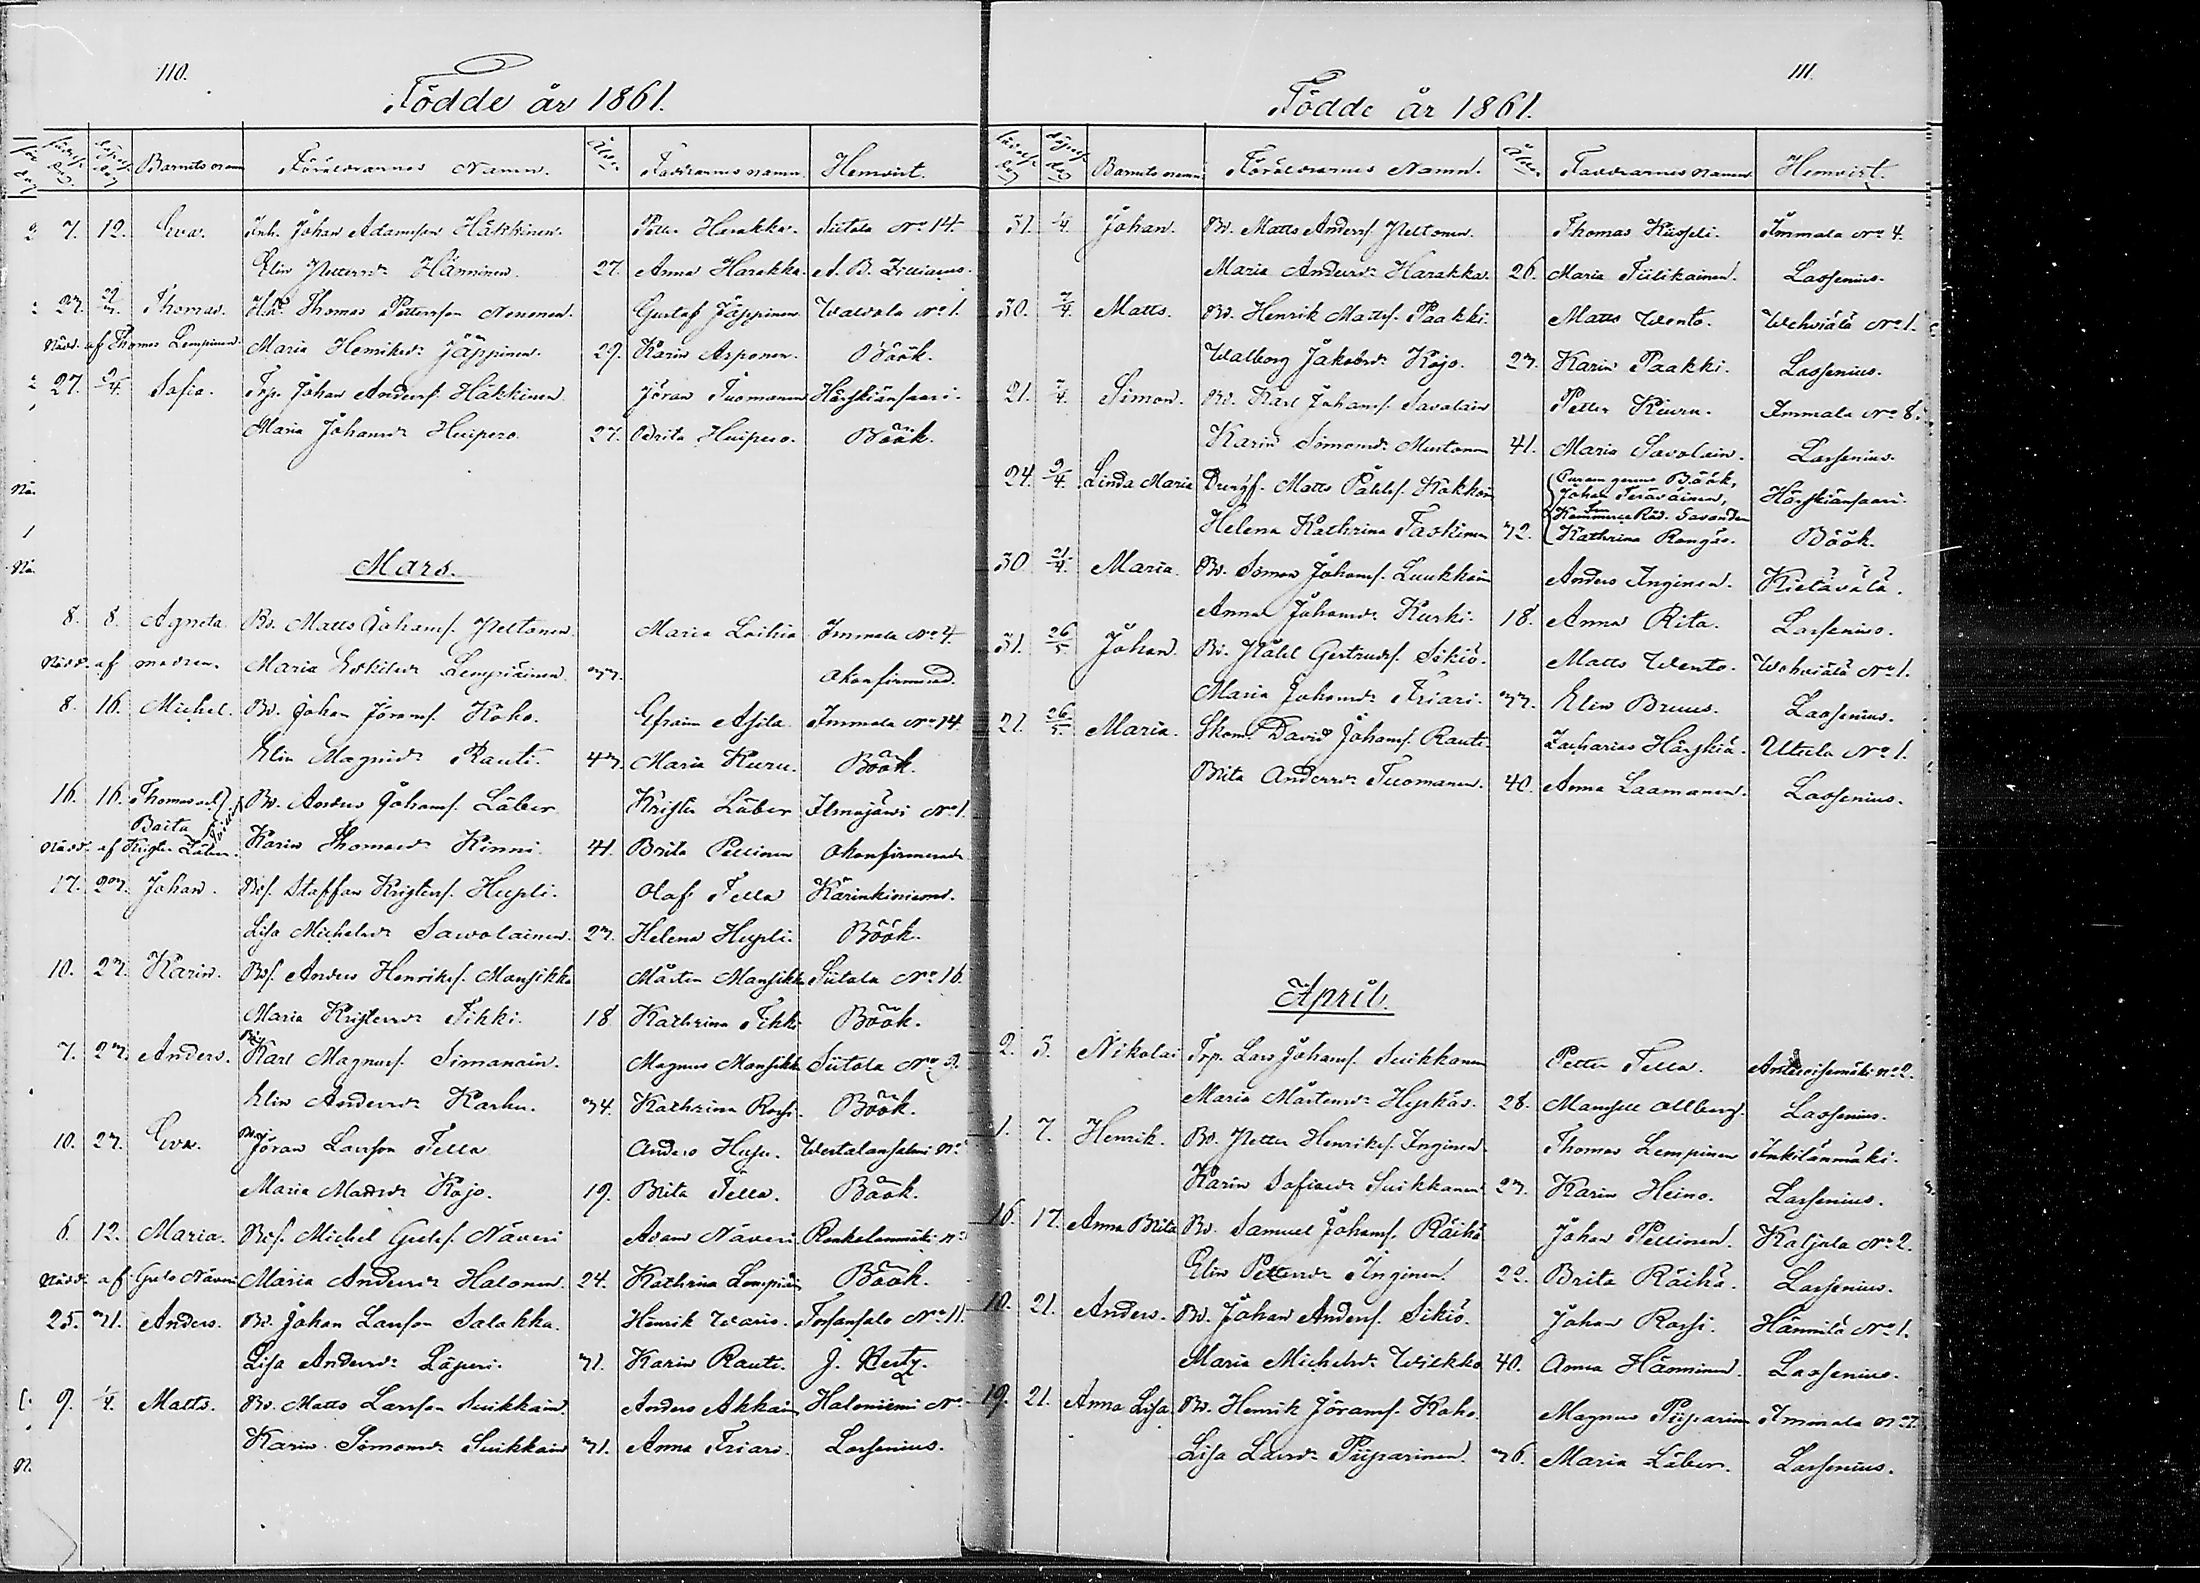 110.
Födde år 1861.
Barnets namn Föräldrarnes Namn. Ålder Faddrarnes namn Hemvist.
7. 12. Eva. Inh. Johan Adamsson Häkkinen. Petter Harakka. Siitola No 14
Elin Pettersdr Hänninen. 27. Anna Harakka.
Thomas. Thomas Pettersson Nenonen. Gustaf Jäppinen Walvola No 1.
Nödd. af Thomas Lempinen. Maria Henriksdr Jäppinen. 29. Karin Asponen. Böök.
27. 2/4. Sofia. Trp. Johan Anderss. Häkkinen Jöran Tuomanen Härskiänsaari.
Maria Johansdr Huipero. 27. Brita Huipero. Böök.
Mars.
8. 8. Agneta. Bd. Matts Johanss. Peltonen. Maria Laihia Immala No 4
Nödd. af modren. Maria Eskilsdr Lempiäinen 33. Okonfirmerad.
8. 16. Michel. Bd. Johan Jöranss. Koho. Efraim Asila Immala No 14
Elin Magnidr Rauti. 43. Maria Kuru. Böök.
16. 16. Thomas och Bd. Anders Johanss. Läber Krister Läber Ilmajärvi No 1.
Brita
Nödd. af Krister Läber. Karin Thomasdr Kinni. 41. Brita Pellinen Okonfirmerad
17. 23. Johan. Bs. Staffan Kristerss. Hupli. Olaf Tella Kärinkiniemi.
Lisa Michelsdr Sawolainen. 23. Helena Hupli. Böök.
10. 23. Karin. Bs. Anders Henrikss. Mansikka Mårten Mansikka Siitola No 16.
Maria Kristersdr Tikki. 18 Kathrina Tikki Böök.
7. 23. Anders. Karl Magnuss. Simanain. Magnus Mansikka Siitola No 2.
Elin Andersdr Karhu. 34. Kathrina Rossi. Böök.
10. 23. Eva. Jöran Larsson Tella Anders Hupu. Westalansalmi No
Maria Mattsdr Kojo. 19. Brita Tella. Böök.
6. 12. Maria. Bs. Michel Gustafs. Näveri Adam Näveri Ronkalanmäki No
Nödd. af Gust. Näveri Maria Andersdr Halonen. 24. Kathrina Lempiäin Böök.
25. 31. Anders. Bd. Johan Larsson Salakka. Henrik Waris. Torsansalo No 11.
Lisa Andersdr Läperi. 31. Karin Rauti. J. Hertz.
9. 1/4. Matts. Bd. Matts Larsson Suikkain. Anders Akkain Haloniemi No
Karin Simonsdr Suikkain 31. Anna Friari. Lassenius.
111.
Födde år 1861.
Barnets namn Föräldrarnes Namn. Ålder Faddrarnes Namn Hemvist.
31. 1/4. Johan. Bd. Matts Anderss. Peltonen. Thomas Immala No 4.
Maria Andersdr Harakka. 26. Maria Tiilikainen. Lassenius.
30. 7/4. Matts. Bd. Henrik Mattss. Paakki. Matts Wento. Wehviälä No 1.
Walborg Jakobsdr Kojo. 23. Karin Paakki. Lassenius.
21. 7/4. Simon. Bd. Karl Johanss. Savolain Petter Kiuru. Immala No 8.
Karin Simonsdr Mustonen 41. Maria Savolain. Lassenius.
24. 9/4. Linda Maria Matts Påhls. Kokkoin Böök, Johan Teräväinen, Härskiänsaari.
Helena Kathrina Taskinen 32. Kathrina Rongäs. Böök.
30 21/4. Maria. Bd. Simon Johanss. Luukkain Anders Inginen. Kietävälä.
Anna Johansdr Kurki. 18. Anna Rita. Lassenius.
31. 26/5. Johan. Bd. Påhl Gertruds. Sikiö. Matts Wento. Wehviälä No 1.
Maria Johansdr Friari. 33. Elin Bruus. Lassenius.
21. 26/5. Maria. Skom. David Johanss. Rauti. Zacharias Härskiä. Utula No 1.
Brita Andersdr Tuomanen. 40. Anna Laamanen. Lassenius.
April.
2. 3. Nikolai Trp. Lars Johanss. Suikkanen Petter Tella.
Maria Mårtensdr Hyrkäs. 28. Mamsell Allberg. Lassenius.
1. 7. Henrik. Bd. Petter Henrikss. Inginen. Thomas Lempinen Inkilänmäki.
Karin Sofiasdr Suikkanen 23. Karin Heino. Lassenius.
16. 17. Anna Brita Bd. Samuel Johanss. Räihä Johan Pellinen. Kaljala No 2.
Elin Pettersdr Inginen. 22. Brita Räihä. Lassenius.
10. 21. Anders. Bd. Johan Anderss. Sikiö. Johan Rossi. Hännilä No 1.
Maria Michelsdr Wilkko 40. Anna Hänninen. Lassenius.
19. 21. Anna Lisa. Bd. Henrik Jöranss. Koho. Magnus Piiparin Immala No 7.
Lisa Larsdr Piiparinen. 36. Maria Läber. Lassenius.